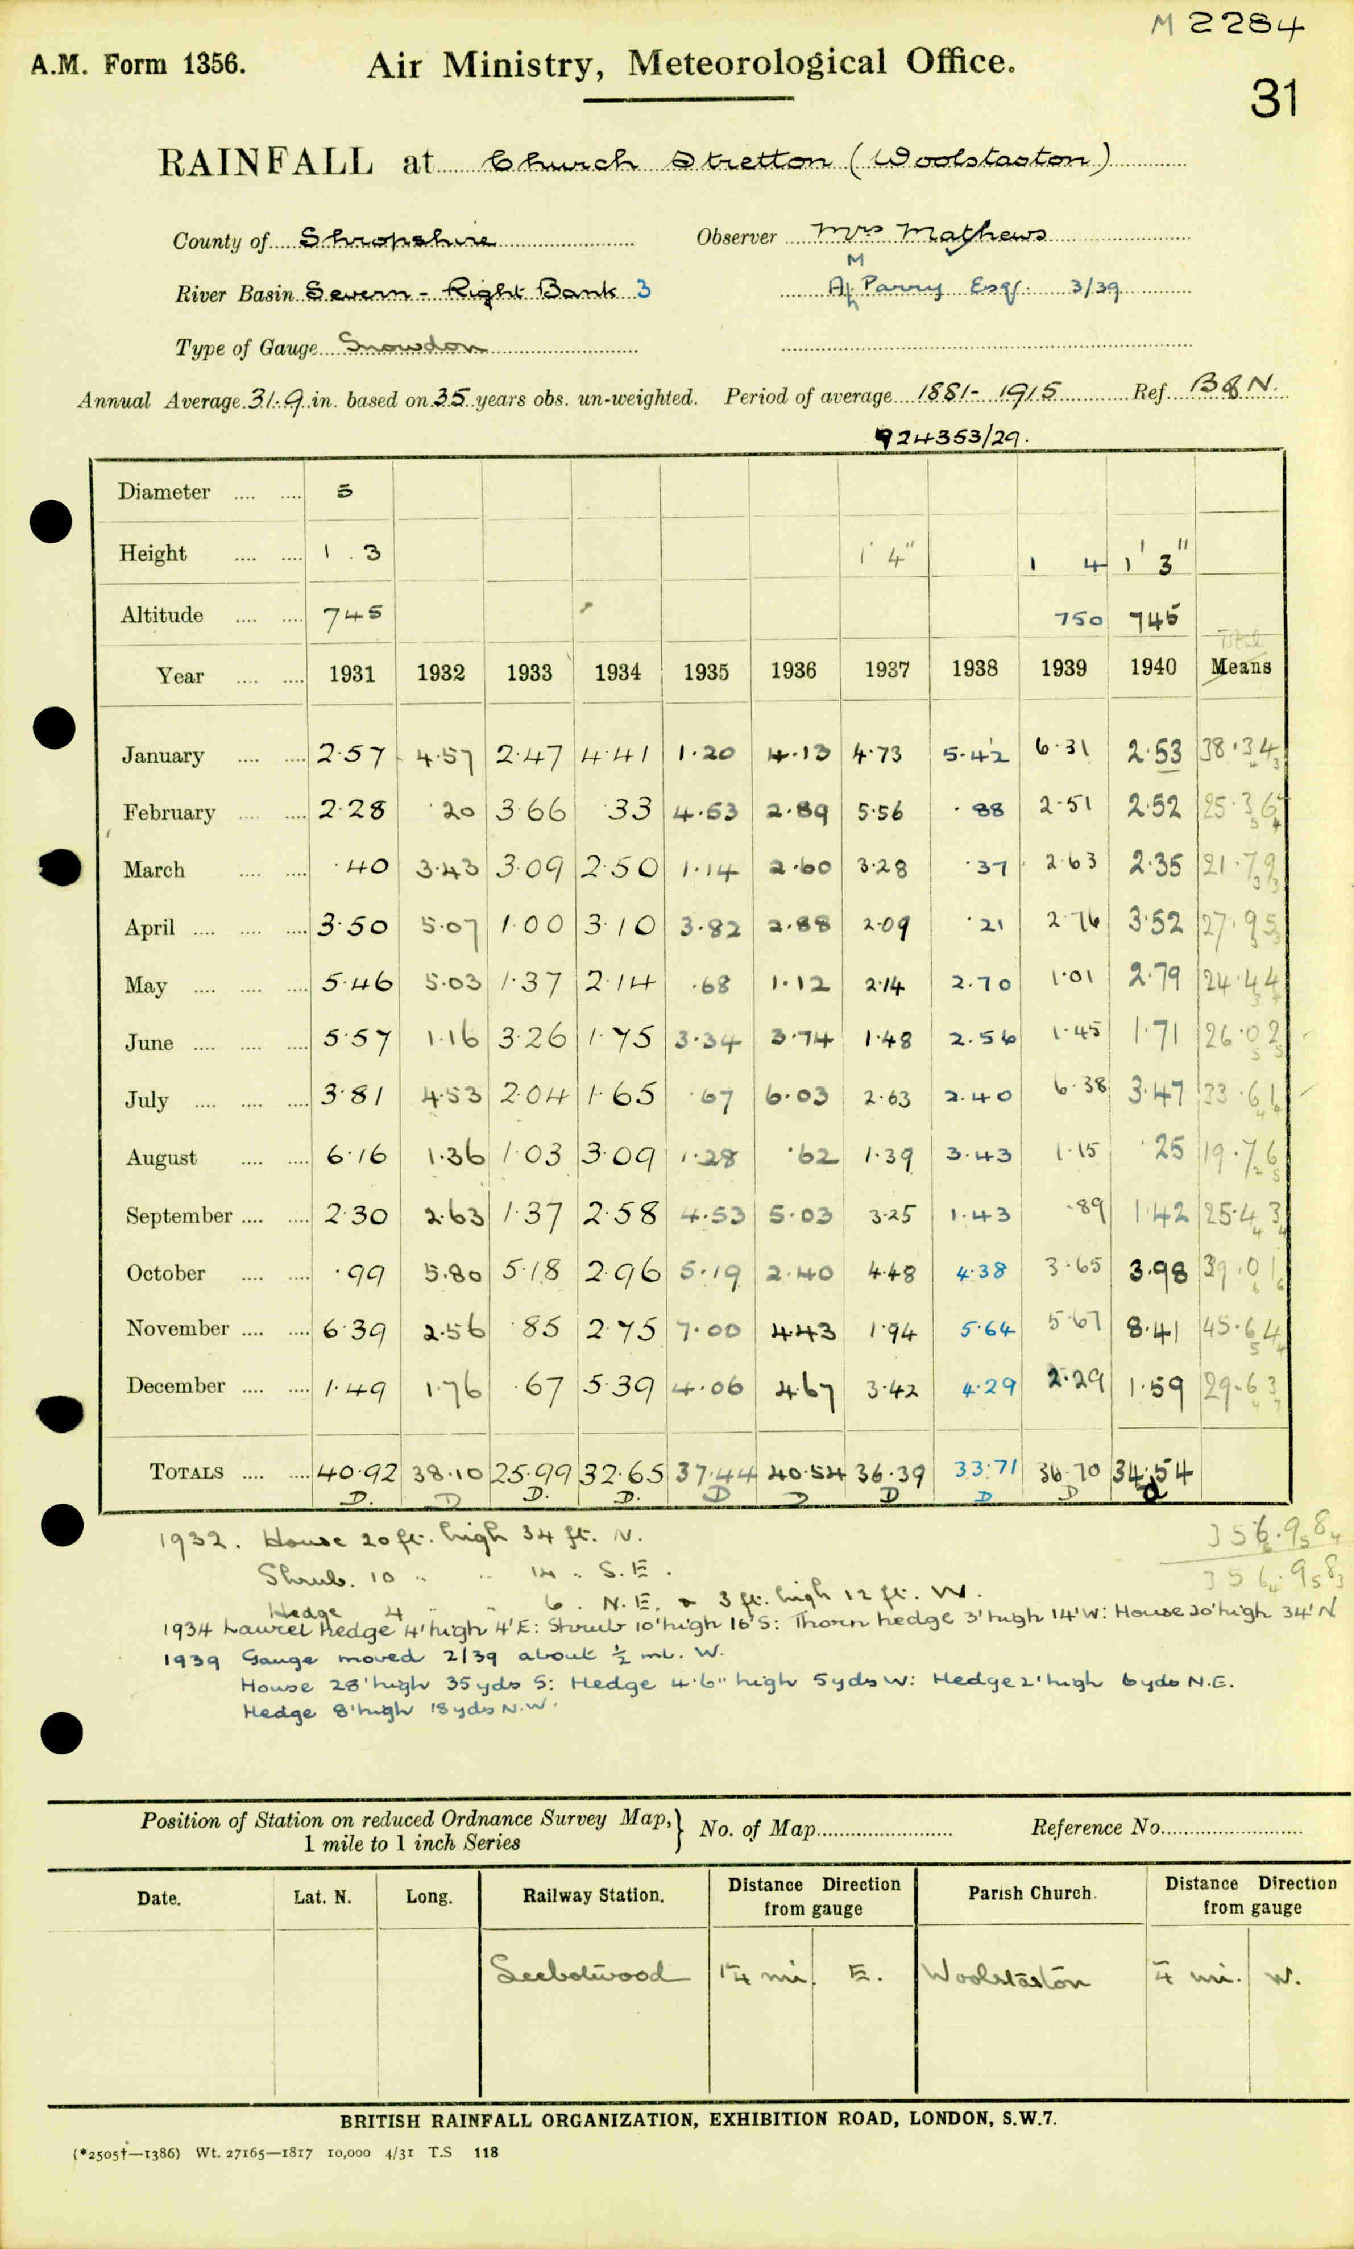 M 2284
A.M. Form 1356. Air Ministry, Meteorological Office.
31
RAINFALL at Church Stretton (Woolstaston)
County of Shropshire Observer Mrs Mathews
River Basin Severn - Right Bank 3 Parry Esq. 3/39
Type of Gauge Snowdon
Annual Average 31.9 in. based on 35 years obs. un-weighted. Period of average 1881-1915 Ref. B & N.
924353/29.
Diameter .... .... 5
Height .... .... 1 . 3 1' 4" 1 4 1' 3"
Altitude .... .... 745 750 745
Total
Year .... .... 1931 1932 1933 1934 1935 1936 1937 1938 1939 1940 Means
January .... .... 2.57 4.57 2.47 4.41 1.20 4.13 4.73 5.42 6.31 2.53 38.34
February .... .... 2.28 .20 3.66 .33 4.53 2.89 5.56 .88 2.51 2.52 25.36
March .... .... .40 3.43 3.09 2.50 1.14 2.60 3.28 .37 2.63 2.35 21.79
April .... .... .... 3.50 5.07 1.00 3.10 3.82 2.88 2.09 .21 2.76 3.52 27.95
May .... .... .... 5.46 5.03 1.37 2.14 .68 1.12 2.14 2.70 1.01 2.79 24.44
June .... .... .... 5.57 1.16 3.26 1.75 3.34 3.74 1.48 2.56 1.45 1.71 26.02
July .... .... .... 3.81 4.53 2.04 1.65 .67 6.03 2.63 2.40 6.38 3.47 33.61
August .... .... 6.16 1.36 1.03 3.09 1.28 .62 1.39 3.43 1.15 .25 19.76
September .... .... 2.30 2.63 1.37 2.58 4.53 5.03 3.25 1.43 .89 1.42 25.43
October .... .... .99 5.80 5.18 2.96 5.19 2.40 4.48 4.38 3.65 3.98 39.01
November .... .... 6.39 2.56 .85 2.75 7.00 4.43 1.94 5.64 5.67 8.41 45.64
December .... .... 1.49 1.76 .67 5.39 4.06 4.67 3.42 4.29 2.29 1.59 29.63
TOTALS .... .... 40.92 38.10 25.99 32.65 37.44 40.54 36.39 33.71 36.70 34.54
D. D D. D. D D D D D d
1932. House 20 ft. high 34 ft. N. 356.98
Shrub. 10 " " 14 " S.E. 356.98
Hedge 4 " " 6 . N.E. & 3 ft. high 12 ft. W.
1934 Laurel hedge 4' high 4'E: Shrub 10' high 16'S: Thorn hedge 3' high 14'W: House 20' high 34'N
1939 Gauge moved 2/39 about ½ ml. W.
House 28' high 35 yds S: Hedge 4'6" high 5 yds W: Hedge 2' high 6 yds N.E.
Hedge 8' high 18 yds N.W.
Position of Station on reduced Ordnance Survey Map, 1 mile to 1 inch Series } No. of Map Reference No.
Date. Lat. N. Long. Railway Station. Distance Direction from gauge Parish Church. Distance Direction from gauge
Leebotwood 1¼ mi. E. Woolstaston ¼ mi. W.
BRITISH RAINFALL ORGANIZATION, EXHIBITION ROAD, LONDON, S.W.7.
(*2505†—1386) Wt. 27165—1817 10,000 4/31 T.S 118